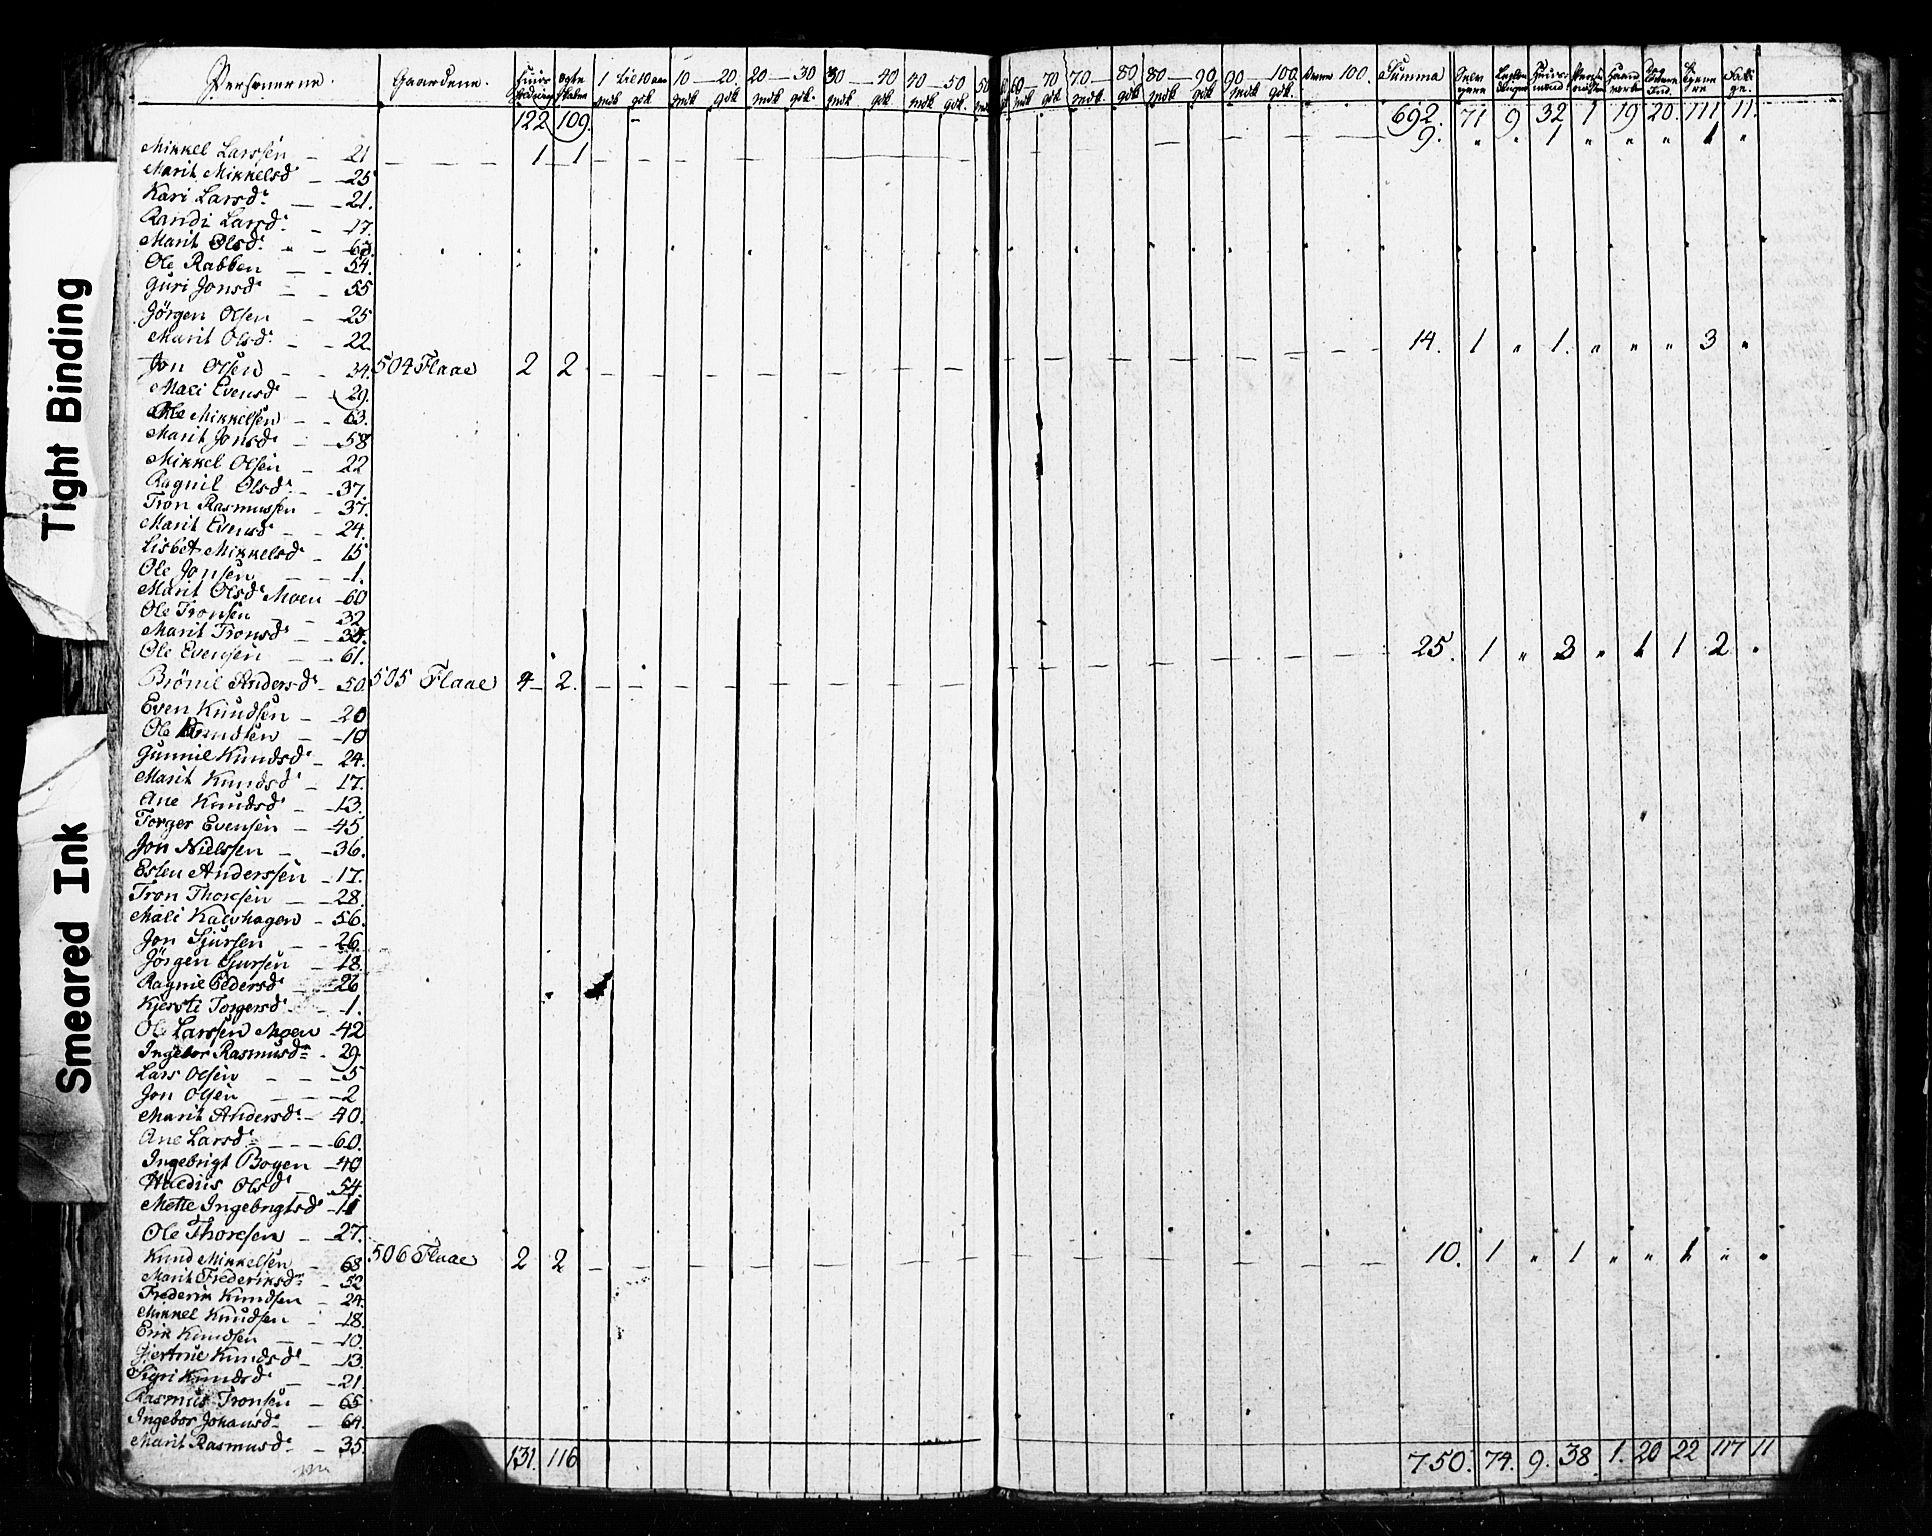 Tight Binding
Smeared Ink
Personerne. Gaardene. Huus 1 til 10 aar 10 — 20 20 — 30 30 — 40 40 — 50 50 60 — 70 70 — 80 80 — 90 90 — 100. 100. Summa
mdk gdk mdk gdk mdk gdk. mdk gdk mdk gdk. mdk gdk mdk. gdk mdk gdk mdk gdk.
122 109. 692. 71 9 32 1 19 20. 111 11.
Mikkel Larssen — 21 — — — — 1 — 1 — 9. " " 1 " " " 1 "
Marit Mikkelsd — 25
Kari Larsd — 21.
Randi Larsd. — 17.
Marit Olsd. " 63.
Ole Rabben — 54.
Guri Jonsd — 55
Jörgen Olsen — 25
Marit Olsd — 22. 14. 1 " 1. " " " 3 "
Jon Olsen — 34. 504 Flaae 2 2
Mari Evensd — 29.
Ole Mikkelsen — 63.
Marit Jonsd — 58
Mikkel Olsen — 22
Ragnil Olsd. — 37.
Tron Rasmussen — 37.
Marit Evensd — 24.
Lisbet Mikkelsd — 15
Ole Jonsen — 1.
Marit Olsd Moen — 60
Ole Tronsen — 32
Marit Tronsd — 34.
Ole Evensen — 61. 25. 1 " 3 " 1 1 2 "
Brönil Andersd — 50. 505 Flaae 4 — 2.
Even Knudsen — 20
Ole Knudsen — 10
Gunnil Knudsd — 24.
Marit Knudsd — 17.
Ane Knudsd — 13.
Torger Evensen — 45
Jon Nielssen — 36.
Esten Anderssen — 17.
Tron Thoresen — 28.
Mali Kalvhagen — 56.
Jon Sjursen — 26
Jörgen Sjursen — 18.
Ragnil Pedersd — 26
Kjersti Torgersd — 1.
Ole Larssen Moen — 42
Ingebor Rasmusd — 29.
Lars Olsen — 5
Jon Olsen — 2
Marit Andersd. — 40.
Ane Larsd. — 60.
Ingebrigt Bogen — 40
Olsd — 54
Mette Ingebrigtsd — 11
Ole Thoresen — 27.
Knud Mikkelsen — 68 506 Flaae 2 2 10. 1 " 1 " " 1 " "
Marit Frederiksd — 52
Frederik Knudsen — 24.
Mikkel Knudsen — 18.
Erik Knudsen — 10.
Gjertrue Knudsd — 13.
Sigri Knudsd — 21
Rasmus Tronsen — 65
Ingebor Johansd — 64.
Marit Rasmusd. — 35.
131. 116 750. 74. 9. 38. 1. 20 22 117 11